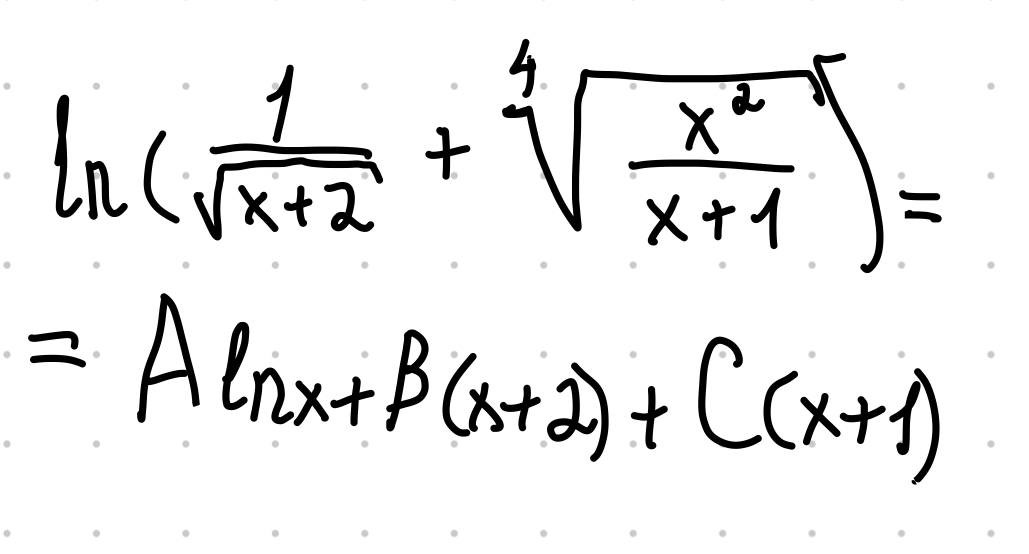 ln(1/√(x+2) + ∜(x²/(x+1))) =
= A ln x + B(x+2) + C(x+1)